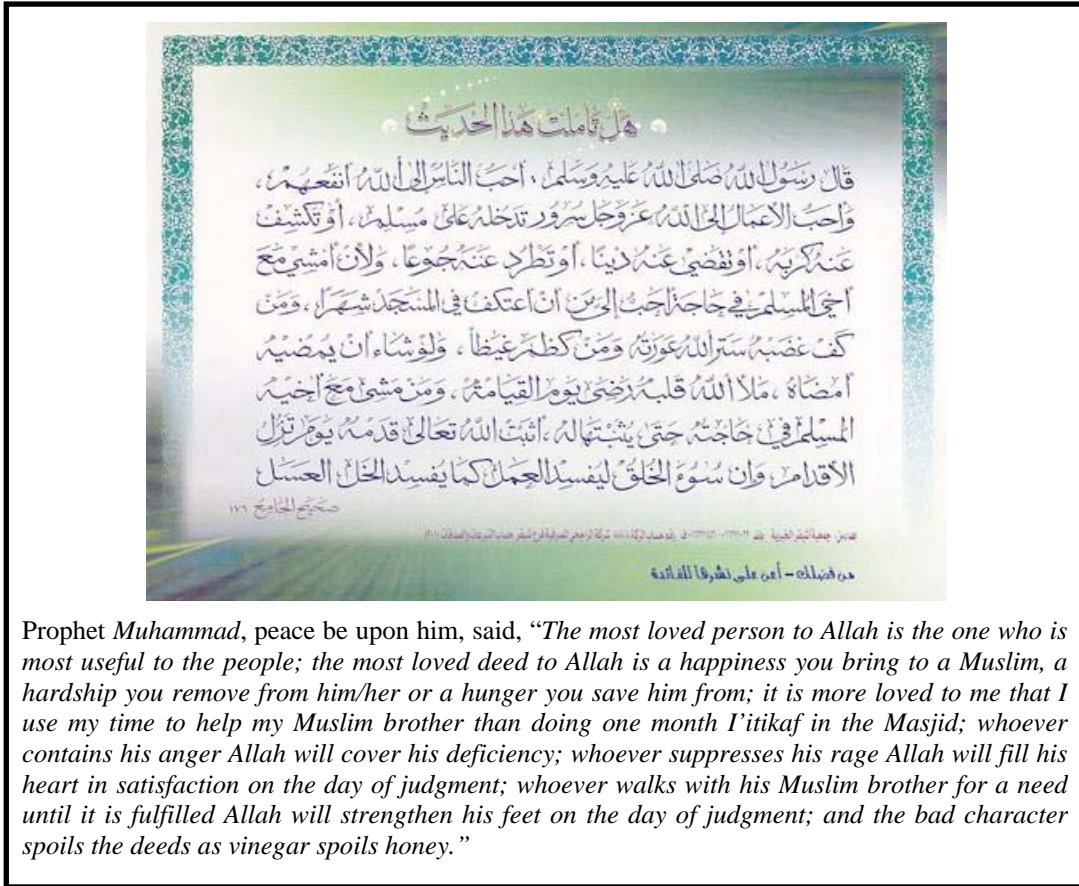 هل تأملت هذا الحديث
قال رسول الله صلى الله عليه وسلم : أحب الناس إلى الله أنفعهم ،
وأحب الأعمال إلى الله عز وجل سرور تدخله على مسلم ، أو تكشف
عنه كربة ، أو تقضي عنه دينا ، أو تطرد عنه جوعا ، ولأن أمشي مع
أخي المسلم في حاجة أحب إلي من أن أعتكف في المسجد شهرا ، ومن
كف غضبه ستر الله عورته ومن كظم غيظا ، ولو شاء أن يمضيه
أمضاه ، ملأ الله قلبه رضى يوم القيامة ، ومن مشى مع أخيه
المسلم في حاجته حتى يثبتها له ، أثبت الله تعالى قدمه يوم تزل
الأقدام ، وإن سوء الخلق ليفسد العمل كما يفسد الخل العسل
صحيح الجامع ١٧٦
من فضلك - أعن على نشرها للفائدة
Prophet Muhammad, peace be upon him, said, “The most loved person to Allah is the one who is
most useful to the people; the most loved deed to Allah is a happiness you bring to a Muslim, a
hardship you remove from him/her or a hunger you save him from; it is more loved to me that I
use my time to help my Muslim brother than doing one month I’itikaf in the Masjid; whoever
contains his anger Allah will cover his deficiency; whoever suppresses his rage Allah will fill his
heart in satisfaction on the day of judgment; whoever walks with his Muslim brother for a need
until it is fulfilled Allah will strengthen his feet on the day of judgment; and the bad character
spoils the deeds as vinegar spoils honey.”